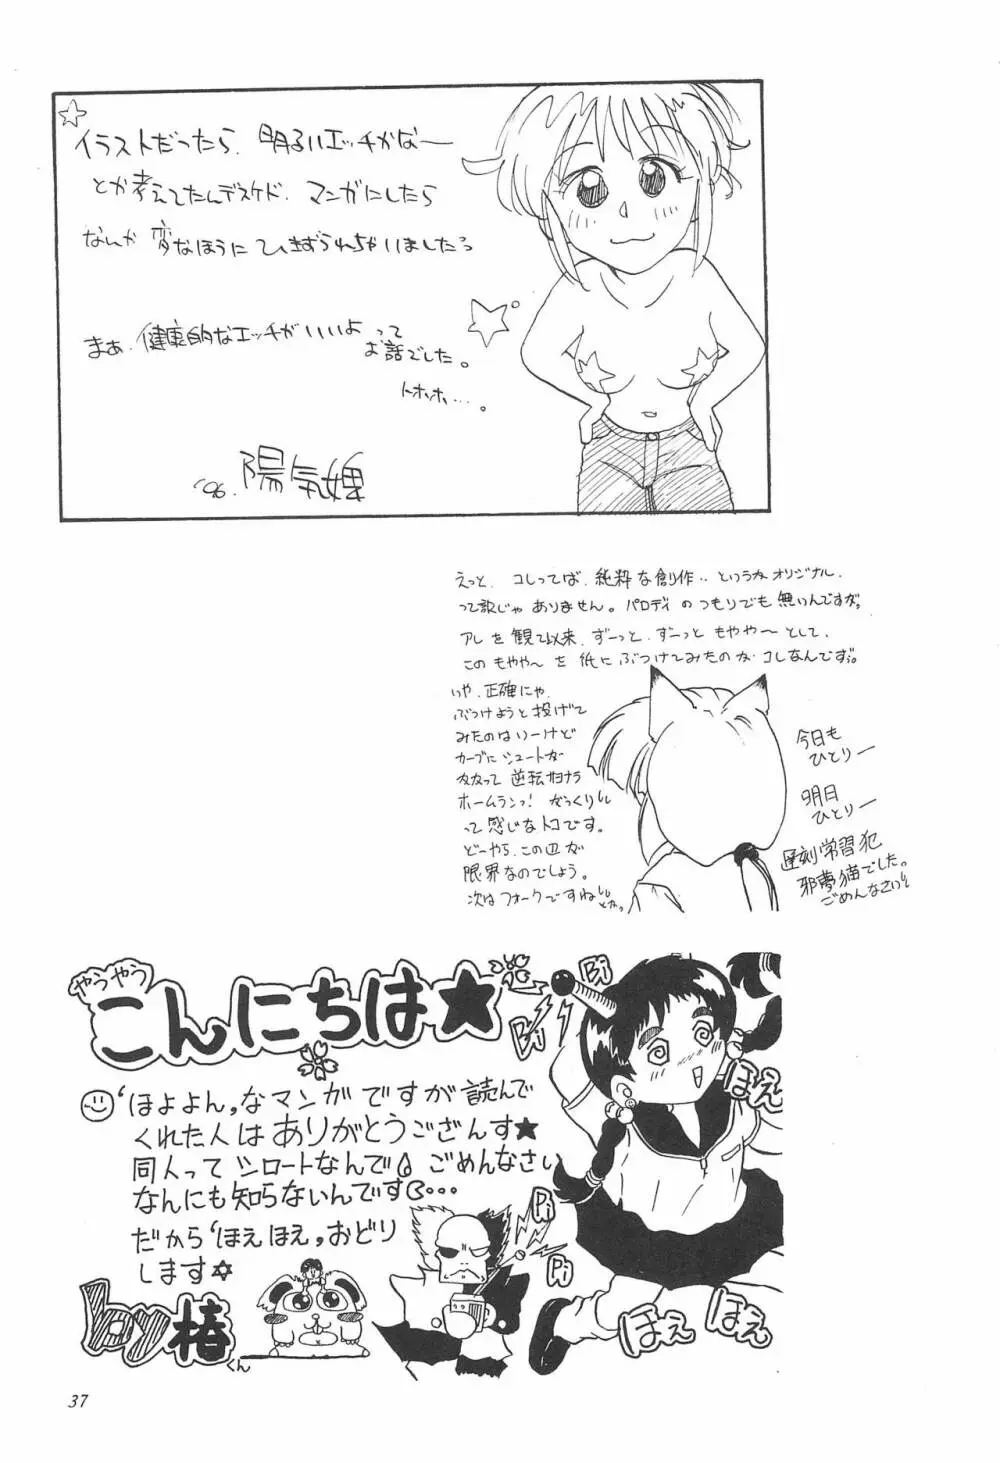 イラストだったら、明るいエッチかな〜
とか考えてたんデスケド、マンガにしたら
なんか 変なほうに ひきずられちゃいましたっ
まぁ、健康的なエッチがいいよって
お話でした。
トホホ…。
'96. 陽気婢
えっと、コレってば、純粋な創作‥というかオリジナル、
って訳じゃ ありません。パロディのつもりでも 無いんですが、
アレを観て以来、ずーっと、ずーっと もやや〜 として、
この もやや〜 を 紙に ぶつけてみたのが コレなんですぅ。
いや、正確にゃ、
ぶつけようと投げて
みたのはいーけど
カーブにシュートが
なって 逆転サヨナラ
ホームランっ! がっくりぃ
って感じなトコです。
どーやら、この辺が
限界なのでしょう。
次はフォークですねぃ
とかっ
今日も
ひとりー
明日
ひとりー
遅刻常習犯
邪夢猫でした。
ごめんなさいぃ
やうやう
こんにちは★
'ほよよん,なマンガですが読んで
くれた人はありがとうござんす★
同人って シロートなんで ごめんなさい
なんにも知らないんです…
だから'ほえほえ,おどり
します☆
by椿くん
Bi
Bi
Pi
Pi
Pi
ほえ
ほえ
ほえ
37